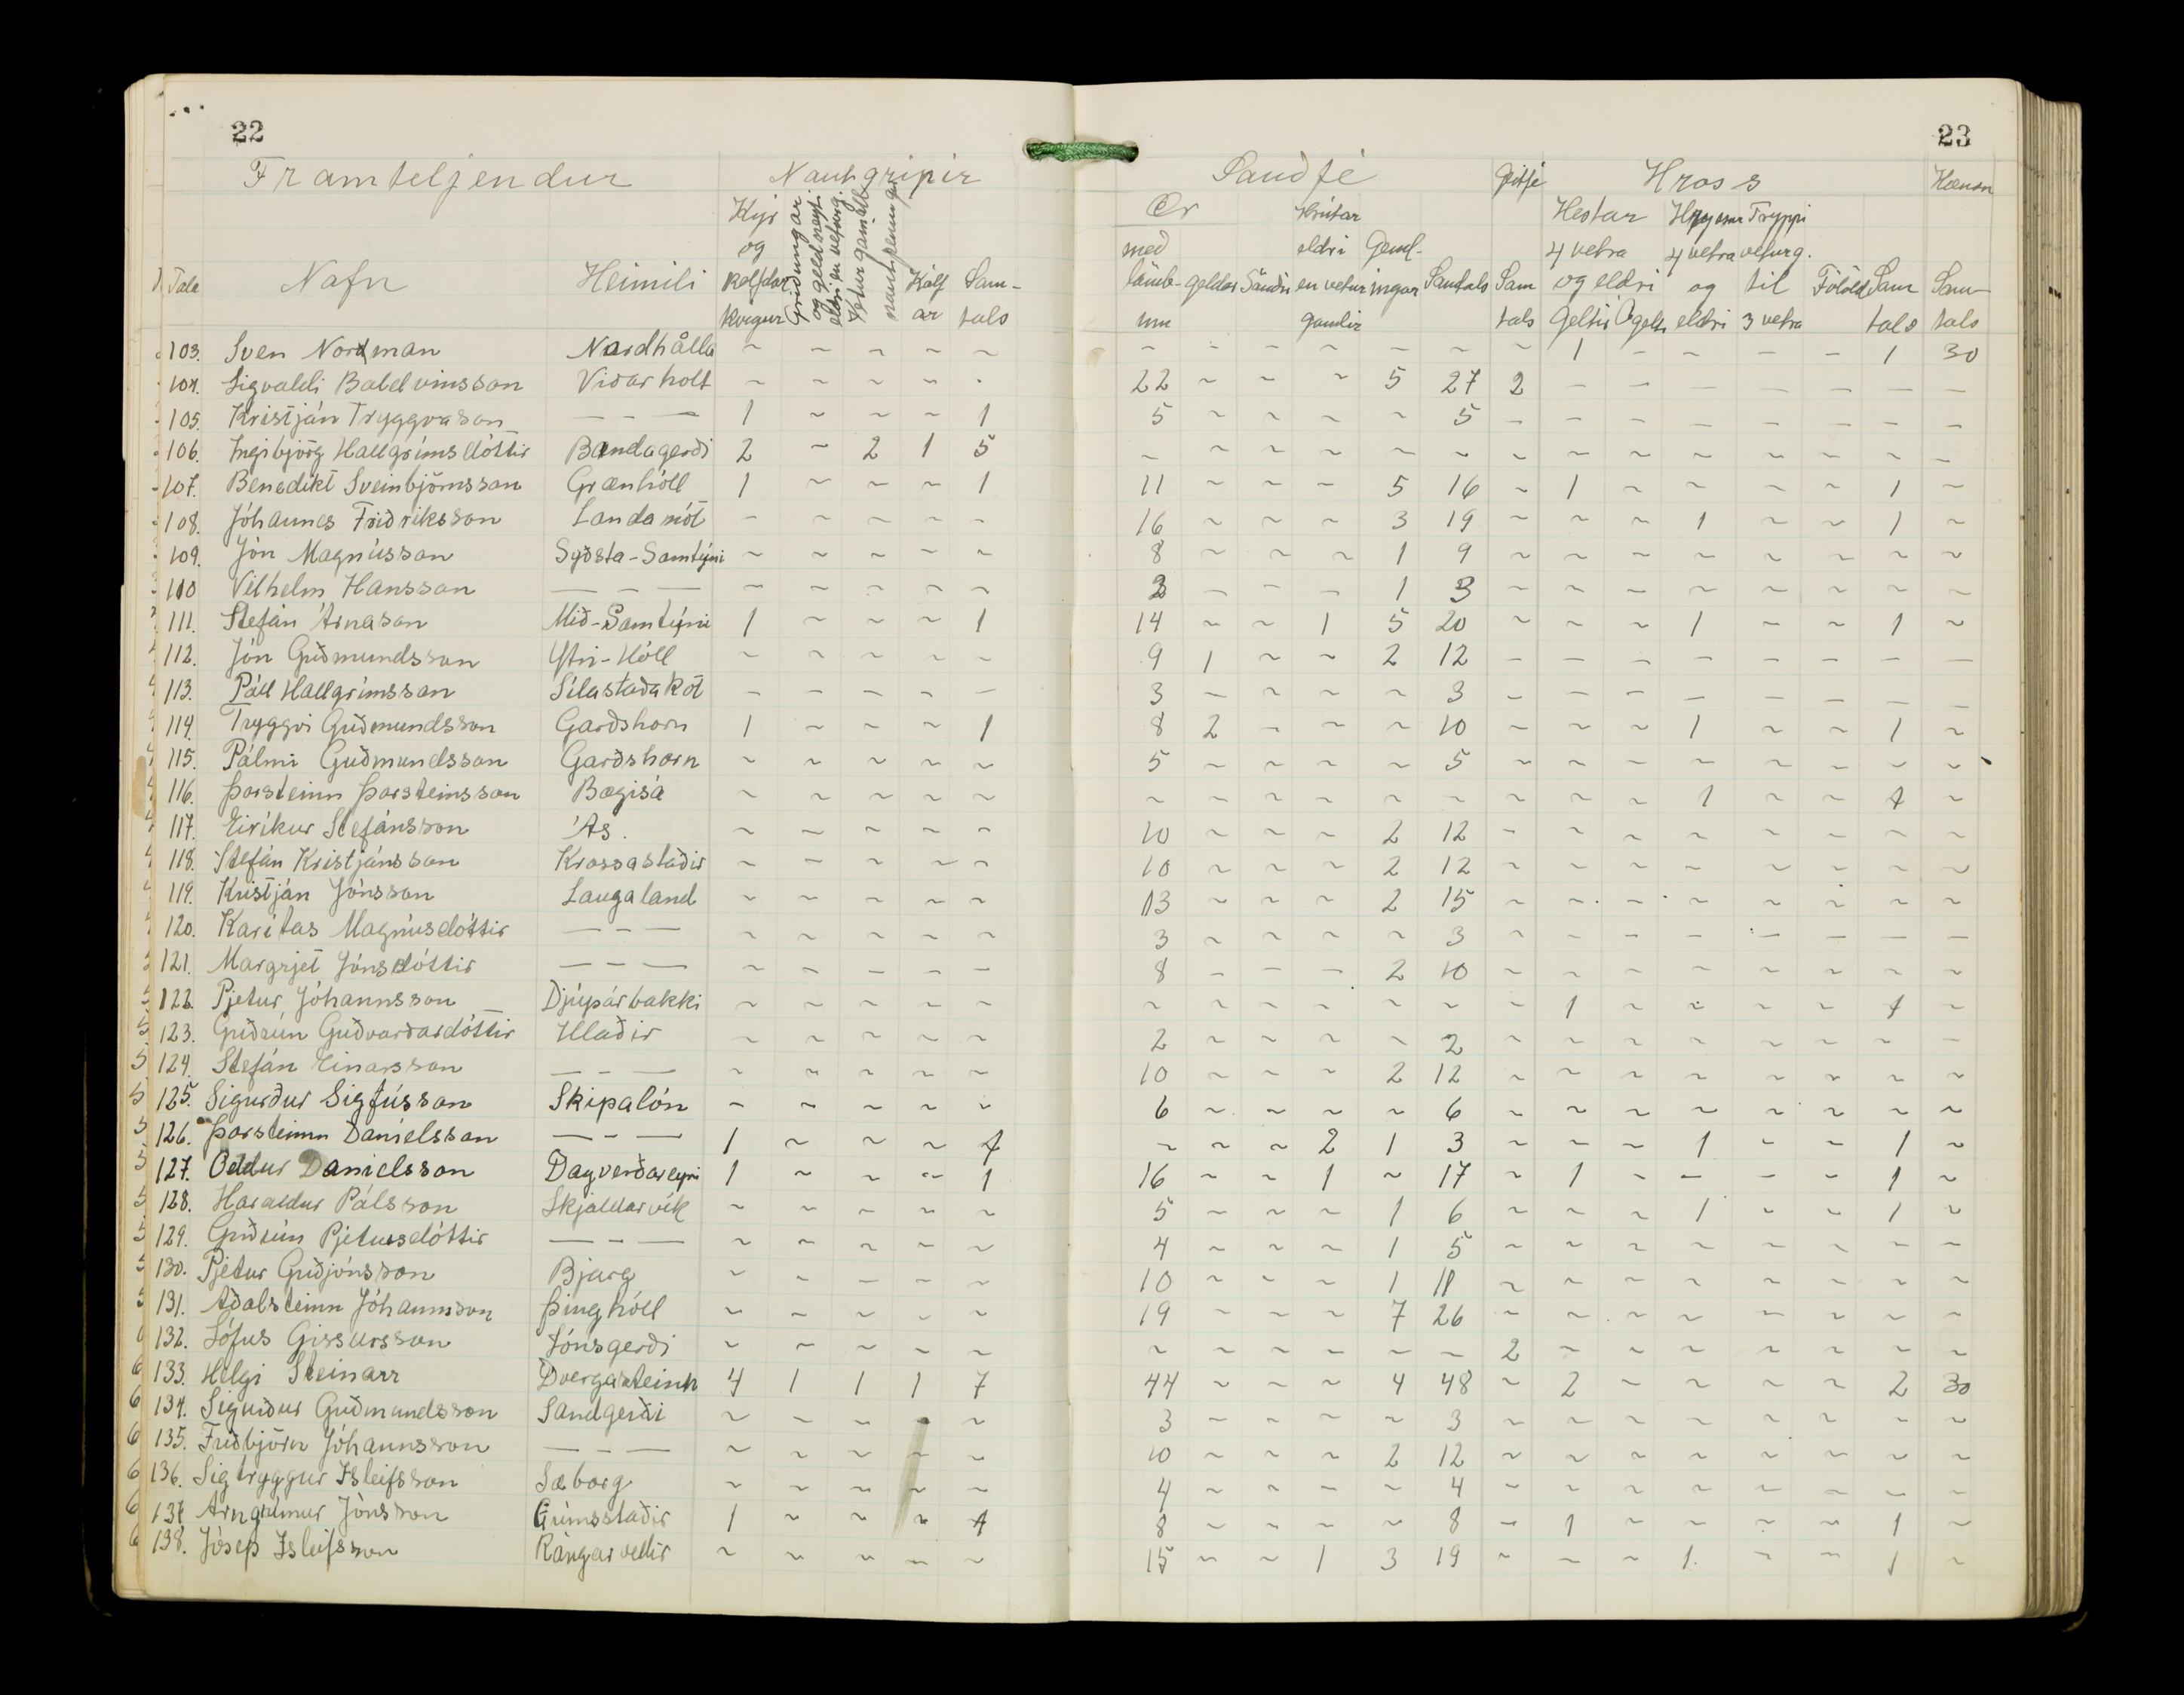 22
23
Framteljendur Nautgripir Sauðfé Geitfé Hross Hænsn
Kýr og kelfdar kvígur
Griðungar og geldneyti eldri en veturg.
Veturgamall nautpeningur
Kálfar
Samtals
Ær með lömbum geldar Sauðir Hrútar eldri en vetur gamlir Gemlingar Samtals Sam tals
Hestar 4 vetra og eldri Geltir Ógelt. Hryssur 4 vetra og eldri Tryppi veturg. til 3 vetra Fölöld Sam tals Sam tals
Tala Nafn Heimili
103. Sven Nordman Nordhålla ~ ~ ~ ~ ~ ~ ~ ~ ~ ~ ~ ~ 1 – ~ – – 1 30
104. Sigvaldi Baldvinsson Viðarholt ~ ~ ~ ~ ~ 22 ~ ~ ~ 5 27 2 – – – – – – –
105. Kristján Tryggvason – – – 1 ~ ~ ~ 1 5 ~ ~ ~ ~ 5 – – – – – – – –
106. Ingibjörg Hallgrímsdóttir Bandagerði 2 ~ 2 1 5 ~ ~ ~ ~ ~ ~ ~ ~ ~ ~ ~ ~ ~ ~
107. Benedikt Sveinbjörnsson Grænhóll 1 ~ ~ ~ 1 11 ~ ~ ~ 5 16 ~ 1 ~ ~ ~ ~ 1 ~
108. Jóhannes Friðriksson Landamót ~ ~ ~ ~ ~ 16 ~ ~ ~ 3 19 ~ ~ ~ 1 ~ ~ 1 ~
109. Jón Magnússon Syðsta-Samtýni ~ ~ ~ ~ ~ 8 ~ ~ ~ 1 9 ~ ~ ~ ~ ~ ~ ~ ~
110 Vilhelm Hansson – – – ~ ~ ~ ~ ~ 2 ~ ~ ~ 1 3 ~ ~ ~ ~ ~ ~ ~ ~
111. Stefán Árnason Mið-Samtýni 1 ~ ~ ~ 1 14 ~ ~ 1 5 20 ~ ~ ~ 1 ~ ~ 1 ~
112. Jón Guðmundsson Ytri-Hóll ~ ~ ~ ~ ~ 9 1 ~ ~ 2 12 – – – – – – – –
113. Páll Hallgrímsson Sílastaðakot – – – – – 3 ~ ~ ~ ~ 3 – – – – – – – –
114. Tryggvi Guðmundsson Garðshorn 1 ~ ~ ~ 1 8 2 ~ ~ ~ 10 ~ ~ ~ 1 ~ ~ 1 ~
115. Pálmi Guðmundsson Garðshorn ~ ~ ~ ~ ~ 5 ~ ~ ~ ~ 5 ~ ~ ~ ~ ~ ~ ~ ~
116. Þorsteinn Þorsteinsson Bægisá ~ ~ ~ ~ ~ ~ ~ ~ ~ ~ ~ ~ ~ ~ 1 ~ ~ 1 ~
117. Eiríkur Stefánsson Ás. ~ ~ ~ ~ ~ 10 ~ ~ ~ 2 12 ~ ~ ~ ~ ~ ~ ~ ~
118. Stefán Kristjánsson Krossastaðir ~ ~ ~ ~ ~ 10 ~ ~ ~ 2 12 ~ ~ ~ ~ ~ ~ ~ ~
119. Kristján Jónsson Laugaland ~ ~ ~ ~ ~ 13 ~ ~ ~ 2 15 ~ ~ ~ ~ ~ ~ ~ ~
120. Karítas Magnúsdóttir – – – ~ ~ ~ ~ ~ 3 ~ ~ ~ ~ 3 ~ – – – – – – –
121. Margrjet Jónsdóttir – – – ~ ~ ~ ~ ~ 8 ~ ~ ~ 2 10 ~ ~ ~ ~ ~ ~ ~ ~
122. Pjetur Jóhannsson Djúpárbakki ~ ~ ~ ~ ~ ~ ~ ~ ~ ~ ~ ~ 1 ~ ~ ~ ~ 1 ~
123. Guðrún Guðvarðardóttir Hlaðir ~ ~ ~ ~ ~ 2 ~ ~ ~ ~ 2 ~ ~ ~ ~ ~ ~ ~ ~
124. Stefán Einarsson – – – ~ ~ ~ ~ ~ 10 ~ ~ ~ 2 12 ~ ~ ~ ~ ~ ~ ~ ~
125. Sigurður Sigfússon Skipalón ~ ~ ~ ~ ~ 6 ~ ~ ~ ~ 6 ~ ~ ~ ~ ~ ~ ~ ~
126. Þorsteinn Daníelsson – – – 1 ~ ~ ~ 1 ~ ~ ~ 2 1 3 ~ ~ ~ 1 ~ ~ 1 ~
127. Oddur Daníelsson Dagverðareyri 1 ~ ~ ~ 1 16 ~ ~ 1 ~ 17 ~ 1 ~ ~ ~ ~ 1 ~
128. Haraldur Pálsson Skjaldarvík ~ ~ ~ ~ ~ 5 ~ ~ ~ 1 6 ~ ~ ~ 1 ~ ~ 1 ~
129. Guðrún Pjetursdóttir – – – ~ ~ ~ ~ ~ 4 ~ ~ ~ 1 5 ~ ~ ~ ~ ~ ~ ~ ~
130. Pjetur Guðjónsson Bjarg ~ ~ ~ ~ ~ 10 ~ ~ ~ 1 11 ~ ~ ~ ~ ~ ~ ~ ~
131. Aðalsteinn Jóhannsson Þinghóll ~ ~ ~ ~ ~ 19 ~ ~ ~ 7 26 ~ ~ ~ ~ ~ ~ ~ ~
132. Lófus Gissursson Jónsgerði ~ ~ ~ ~ ~ ~ ~ ~ ~ ~ ~ 2 ~ ~ ~ ~ ~ ~ ~
133. Helgi Steinarr Dvergasteinn 4 1 1 1 7 44 ~ ~ ~ 4 48 ~ 2 ~ ~ ~ ~ 2 30
134. Sigurður Guðmundsson Sandgerði ~ ~ ~ ~ ~ 3 ~ ~ ~ ~ 3 ~ ~ ~ ~ ~ ~ ~ ~
135. Friðbjörn Jóhannsson – – – ~ ~ ~ ~ ~ 10 ~ ~ ~ 2 12 ~ ~ ~ ~ ~ ~ ~ ~
136. Sigtryggur Ísleifsson Sæborg ~ ~ ~ ~ ~ 4 ~ ~ ~ ~ 4 ~ ~ ~ ~ ~ ~ ~ ~
137 Arngrímur Jónsson Grímsstaðir 1 ~ ~ ~ 1 8 ~ ~ ~ ~ 8 ~ 1 ~ ~ ~ ~ 1 ~
138. Jósep Ísleifsson Rángarvellir ~ ~ ~ ~ ~ 15 ~ ~ 1 3 19 ~ ~ ~ 1. ~ ~ 1 ~